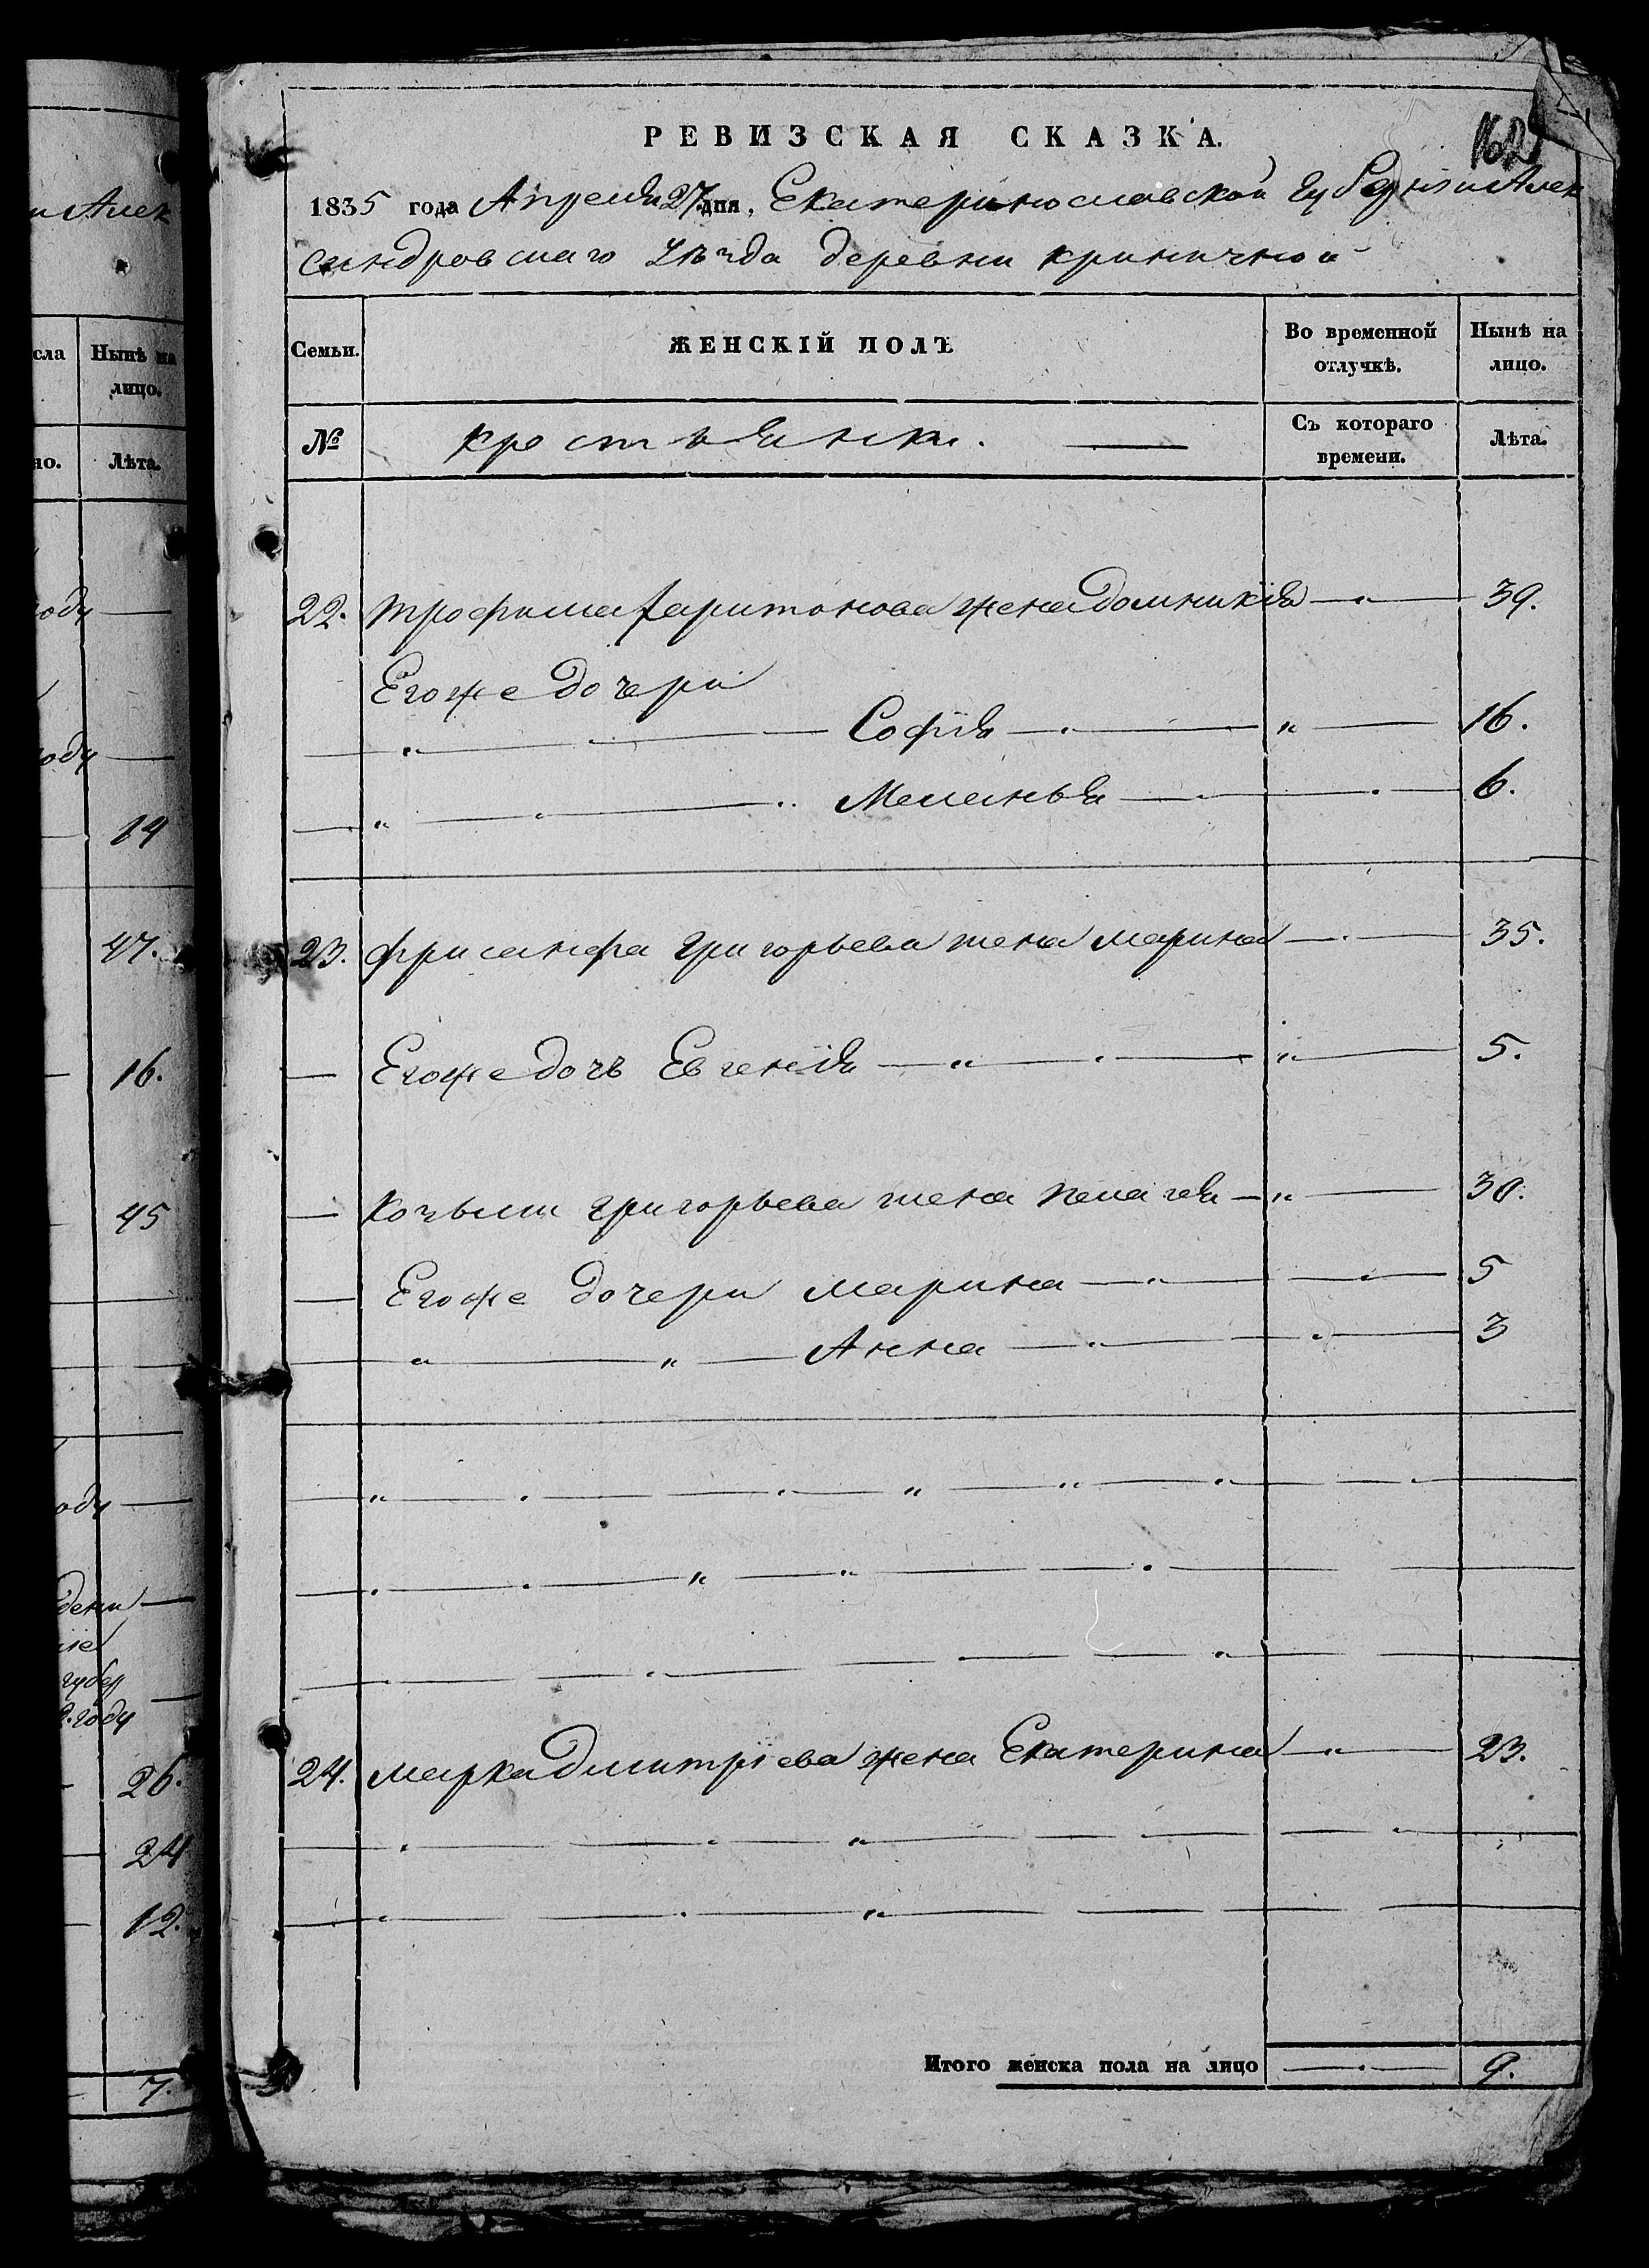 и Алек
сла
Нынѣ на
лицо.
но.
Лѣта.
году
году
14
47.
16.
45
году
губер
году
26.
24
12.
7.
162
РЕВИЗСКАЯ СКАЗКА.
1835 года Апреля 27 дня, Екатеринославской губернии Алек
сандровскаго уѣзда деревни криничной
Семьи. ЖЕНСКІЙ ПОЛЪ Во временной отлучкѣ. Нынѣ на лицо.
№ крестьянки. Съ котораго времени. Лѣта.
22. трофима харитонова жена домникія 39.
Егоже дочери
Софія 16.
Меланья 6.
23. фрисанфа григорьева жена марина 35.
Егоже дочь Евгенія 5.
козьми григорьева жена пелагея 30.
Егоже дочери марина 5
Анна 3
24. марка дмитріева жена Екатерина 23.
Итого женска пола на лицо 9.